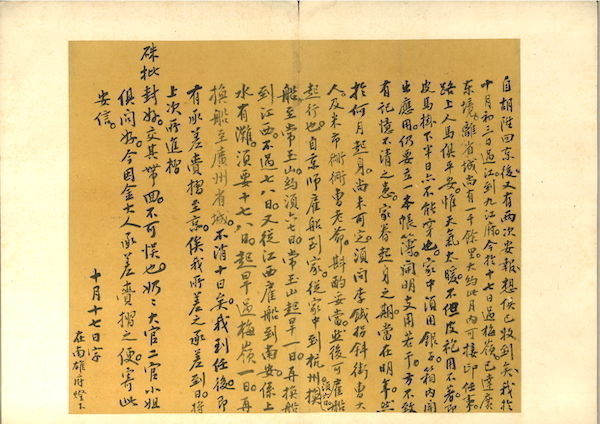 自胡淮回京後又有兩次安報想俱已收到矣我於
十月初三日過江到九江府今於十七日過梅嶺已達廣
東境離省城尚有一千餘里大約此月內可接印任事
路上人馬俱平安惟天氣太暖不但皮袍用不着即
皮馬掛下半日亦不能穿也家中須用銀子箱內開
出應用仍要立一本帳簿開明支用若干方不致
有記憶不清之患家眷起身之期當在明年然
於何月起身尚未可定須同李鐵拐斜街曹大
人及米市衚衕曹老爺斟酌妥當然後可雇船
起行也自京師雇船到家從家中到杭州換
船至常玉山約須六七日常玉山起旱一日再換船
到江西不過七八日又從江西雇船到南安係上
水有灘須要十七八日起旱過梅嶺一日再
換船至廣州省城不消十日矣我到任後即
有承差賫摺至京俟我所差之承差到日將
上次所進摺
硃批封好交其帶回不可悞也奶奶大官二官小姐
俱問好今因金大人承差賫摺之便寄此
安信
十月十七日字
在南雄府燈下